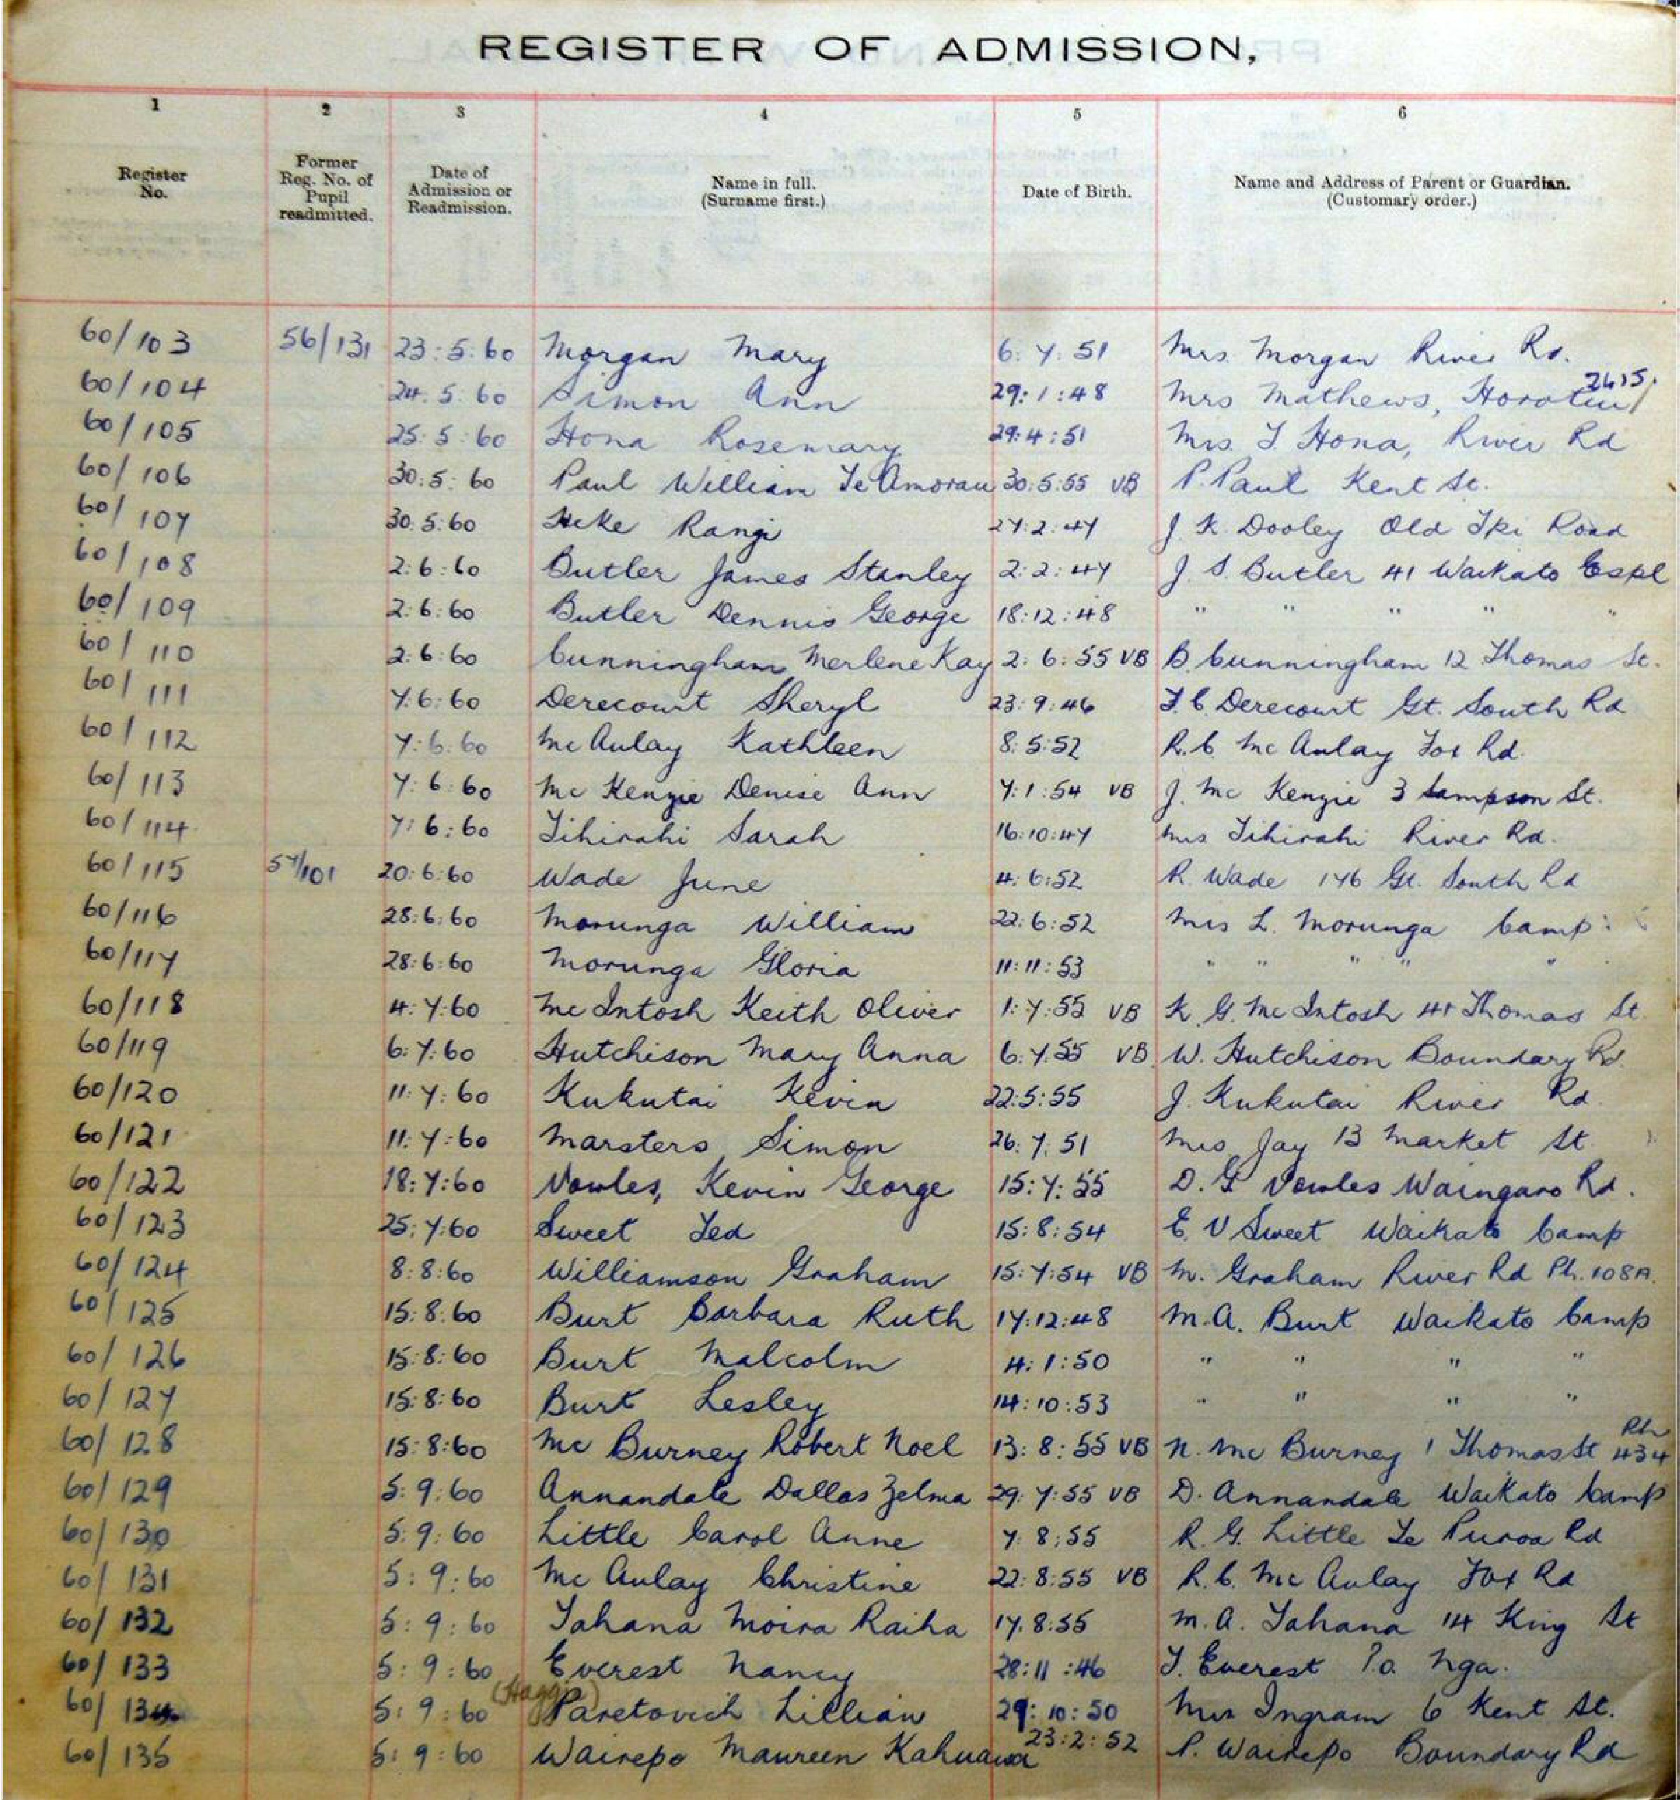 REGISTER OF ADMISSION,
1 2 3 4 5 6
Register No. Former Reg. No. of Pupil readmitted. Date of Admission or Readmission. Name in full. (Surname first.) Date of Birth. Name and Address of Parent or Guardian. (Customary order.)
60/103 56/131 23:5:60 Morgan Mary 6:7:51 Mrs. Morgan River Rd.
60/104 24:5:60 Simon Ann 29:1:48 Mrs Mathews, Horotiu/ 2615.
60/105 25:5:60 Hona Rosemary 29:4:51 Mrs. T. Hona, River Rd
60/106 30:5:60 Paul William Te Amorau 30:5:55 VB P. Paul Kent St.
60/107 30:5:60 Heke Rangi 27:2:47 J. K. Dooley Old Tki Road
60/108 2:6:60 Butler James Stanley 2:2:47 J. S. Butler 41 Waikato Espl
60/109 2:6:60 Butler Dennis George 18:12:48 " " " " "
60/110 2:6:60 Cunningham Merlene Kay 2:6:55 VB B. Cunningham 12 Thomas St.
60/111 7:6:60 Derecourt Sheryl 23:9:46 T. C. Derecourt Gt. South Rd
60/112 7:6:60 Mc Aulay Kathleen 8:5:52 R. C. Mc Aulay Fox Rd.
60/113 7:6:60 Mc Kenzie Denise Ann 7:1:54 VB J. Mc Kenzie 3 Sampson St.
60/114 7:6:60 Tihirahi Sarah 16:10:47 Mrs Tihirahi River Rd.
60/115 57/101 20:6:60 Wade June 4:6:52 R. Wade 176 Gt. South Rd
60/116 28:6:60 Morunga William 22:6:52 Mrs L. Morunga Camp
60/117 28:6:60 Morunga Gloria 11:11:53 " " " " "
60/118 4:7:60 Mc Intosh Keith Oliver 1:7:55 VB K. G. Mc Intosh 41 Thomas St
60/119 6:7:60 Hutchison Mary Anna 6:7:55 VB W. Hutchison Boundary Rd.
60/120 11:7:60 Kukutai Kevin 22:5:55 J. Kukutai River Rd.
60/121 11:7:60 Marsters Simon 26:7:51 Mrs Jay 13 Market St
60/122 18:7:60 Vowles, Kevin George 15:7:55 D. G. Vowles Waingaro Rd.
60/123 25:7:60 Sweet Ted 15:8:54 E. V Sweet Waikato Camp
60/124 8:8:60 Williamson Graham 15:7:54 VB M. Graham River Rd Ph. 108A.
60/125 15:8:60 Burt Barbara Ruth 17:12:48 M. A. Burt Waikato Camp
60/126 15:8:60 Burt Malcolm 4:1:50 " " " "
60/127 15:8:60 Burt Lesley 14:10:53 " " " "
60/128 15:8:60 Mc Burney Robert Noel 13:8:55 VB N. Mc Burney 1 Thomas St Ph 434
60/129 5:9:60 Annandale Dallas Zelma 29:7:55 VB D. Annandale Waikato Camp
60/130 5:9:60 Little Carol Anne 7:8:55 R. G. Little Te Puroa Rd
60/131 5:9:60 Mc Aulay Christine 22:8:55 VB R. C. Mc Aulay Fox Rd
60/132 5:9:60 Tahana Moira Raiha 17:8:55 M. A. Tahana 14 King St
60/133 5:9:60 Everest Nancy 28:11:46 T. Everest P.O. Nga.
60/134 5:9:60 Paretovich Lillian 29:10:50 Mrs Ingram 6 Kent St.
60/135 5:9:60 Wairepo Maureen Kahuawai 23:2:52 P. Wairepo Boundary Rd